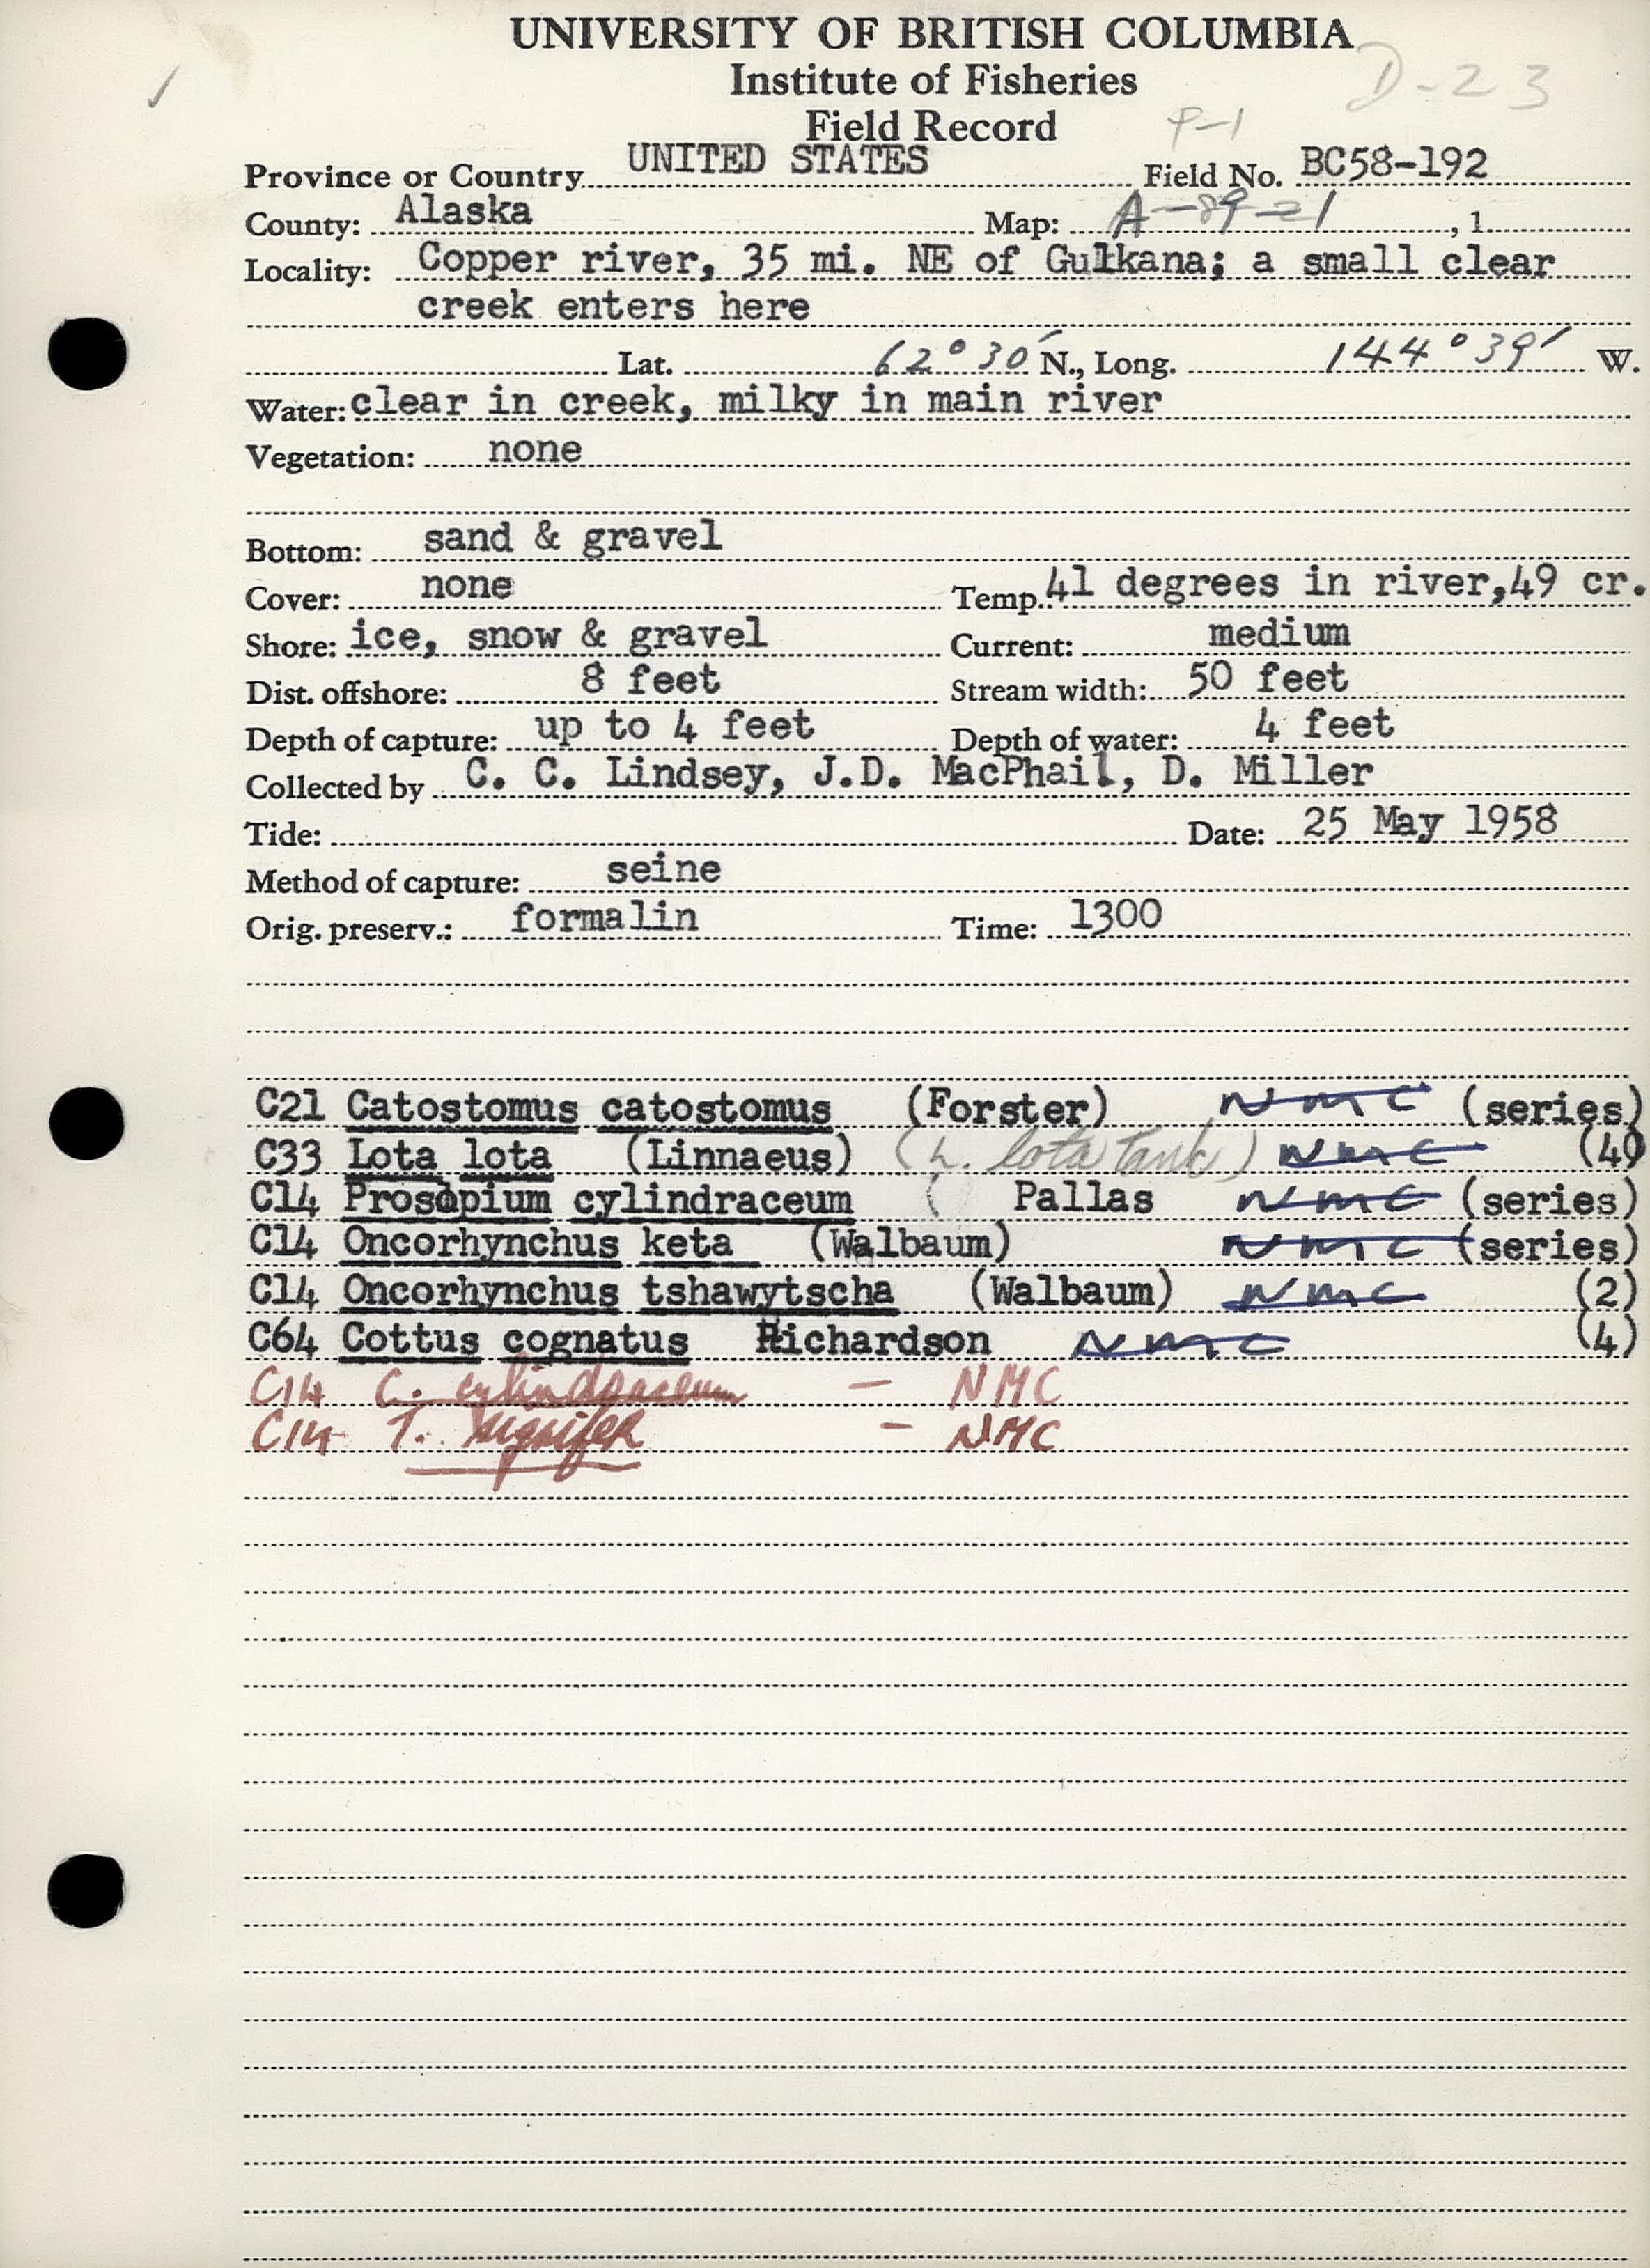 UNIVERSITY OF BRITISH COLUMBIA
Institute of Fisheries D-23
Field Record P-1
Province or Country UNITED STATES Field No. BC58-192
County: Alaska Map: A-89-21, 1
Locality: Copper river, 35 mi. NE of Gulkana; a small clear
creek enters here
Lat. 62°30' N., Long. 144°39' W.
Water: clear in creek, milky in main river
Vegetation: none
Bottom: sand & gravel
Cover: none Temp. 41 degrees in river, 49 cr.
Shore: ice, snow & gravel Current: medium
Dist. offshore: 8 feet Stream width: 50 feet
Depth of capture: up to 4 feet Depth of water: 4 feet
Collected by C. C. Lindsey, J.D. MacPhail, D. Miller
Tide: Date: 25 May 1958
Method of capture: seine
Orig. preserv.: formalin Time: 1300
C21 Catostomus catostomus (Forster) NMC (series)
C33 Lota lota (Linnaeus) (L. lota Tank) NMC (4)
C14 Prosopium cylindraceum ( Pallas NMC (series)
C14 Oncorhynchus keta (Walbaum) NMC (series)
C14 Oncorhynchus tshawytscha (Walbaum) NMC (2)
C64 Cottus cognatus Richardson NMC (4)
C14 C. cylindraceum - NMC
C14 T. signifer - NMC